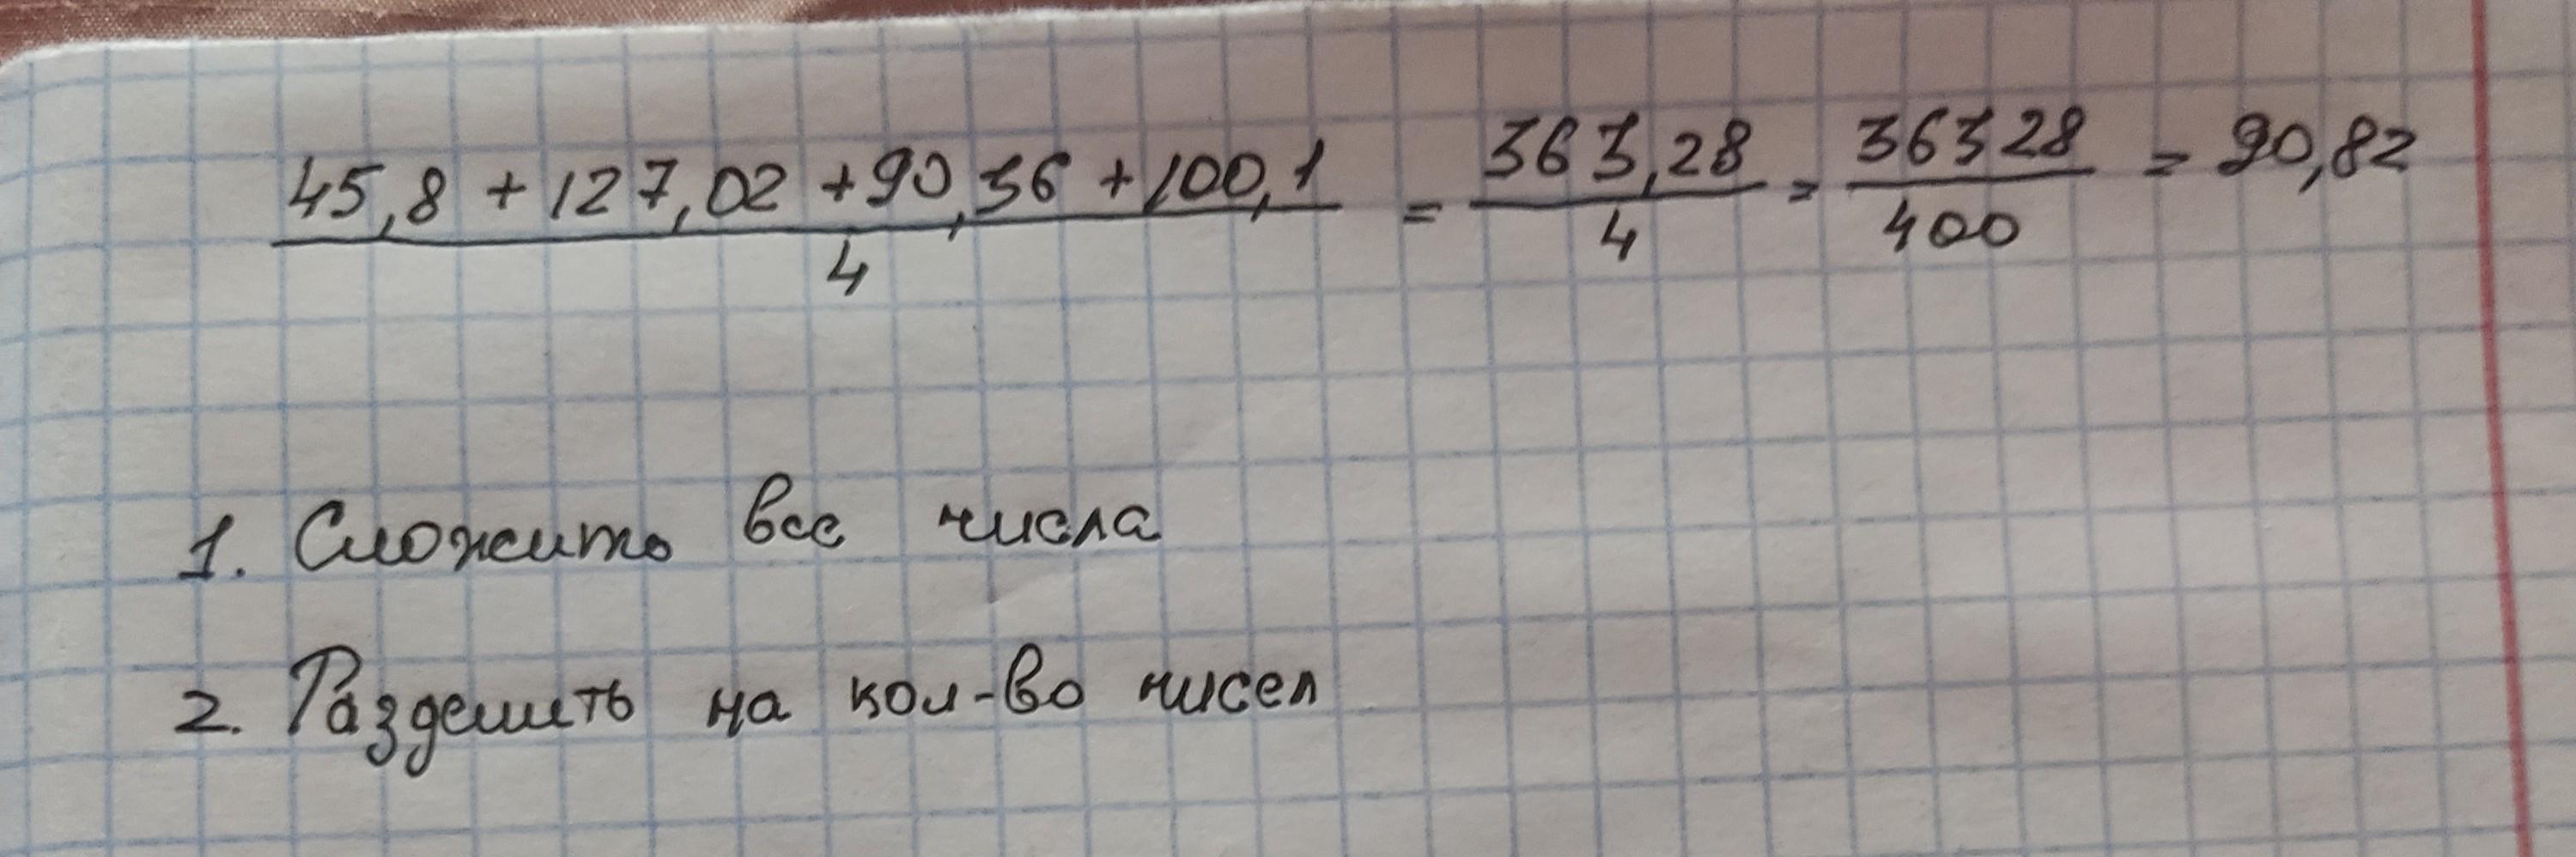 (45,8 + 127,02 + 90,36 + 100,1) / 4 = 363,28 / 4 = 36328 / 400 = 90,82
1. Сложить все числа
2. Разделить на кол-во чисел